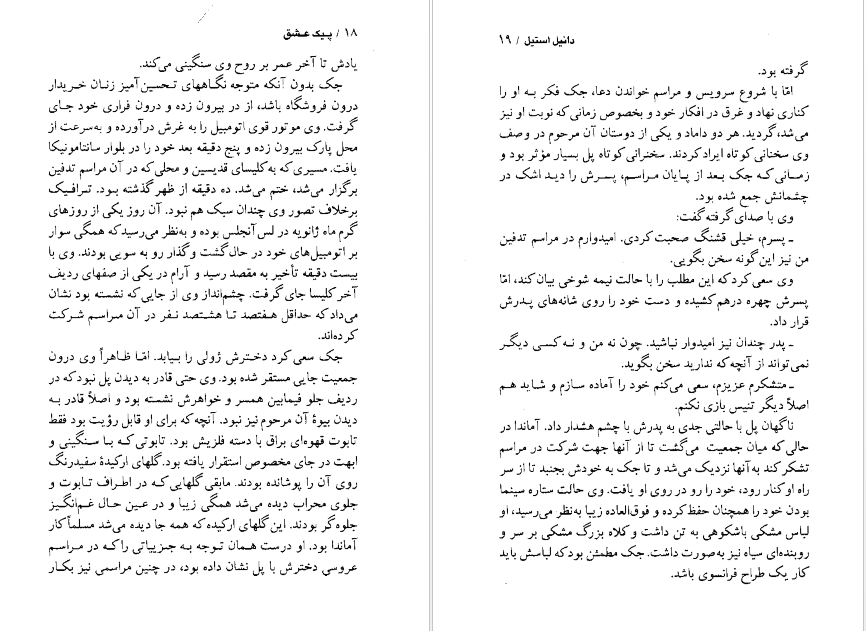 ۱۸ / پیک عشق
یادش تا آخر عمر بر روح وی سنگینی می‌کند.
جک بدون آنکه متوجه نگاههای تحسین‌آمیز زنان خریدار
درون فروشگاه باشد، از در بیرون زده و درون فراری خود جای
گرفت. وی موتور قوی اتومبیل را به غرش درآورده و به‌سرعت از
محل پارک بیرون زده و پنج دقیقه بعد خود را در بلوار سانتامونیکا
یافت. مسیری که به‌کلیسای قدیسین و محلی که در آن مراسم تدفین
برگزار می‌شد، ختم می‌شد. ده دقیقه از ظهر گذشته بود. ترافیک
برخلاف تصور وی چندان سبک هم نبود. آن روز یکی از روزهای
گرم ماه ژانویه در لس‌آنجلس بوده و به‌نظر می‌رسید که همگی سوار
بر اتومبیل‌های خود در حال گشت و گذار رو به سویی بودند. وی با
بیست دقیقه تأخیر به مقصد رسید و آرام در یکی از صفهای ردیف
آخر کلیسا جای گرفت. چشم‌انداز وی از جایی که نشسته بود نشان
می‌داد که حداقل هفتصد تا هشتصد نفر در آن مراسم شرکت
کرده‌اند.
جک سعی کرد دخترش ژولی را بیابد. امّا ظاهراً وی درون
جمعیت جایی مستقر شده بود. وی حتی قادر به دیدن پل نبود که در
ردیف جلو فیمابین همسر و خواهرش نشسته بود و اصلاً قادر به
دیدن بیوهٔ آن مرحوم نیز نبود. آنچه که برای او قابل رؤیت بود فقط
تابوت قهوه‌ای براق با دسته فلزیش بود. تابوتی که با سنگینی و
ابهت در جای مخصوص استقرار یافته بود. گلهای ارکیدهٔ سفیدرنگ
روی آن را پوشانده بودند. مابقی گلهایی که در اطراف تابوت و
جلوی محراب دیده می‌شد همگی زیبا و در عین حال غم‌انگیز
جلوه‌گر بودند. این گلهای ارکیده که همه جا دیده می‌شد مسلماً کار
آماندا بود. او درست همان توجه به جزییاتی را که در مراسم
عروسی دخترش با پل نشان داده بود، در چنین مراسمی نیز بکار
دانیل استیل / ۱۹
گرفته بود.
امّا با شروع سرویس و مراسم خواندن دعا، جک فکر به او را
کناری نهاد و غرق در افکار خود و بخصوص زمانی که نوبت او نیز
می‌شد، گردید. هر دو داماد و یکی از دوستان آن مرحوم در وصف
وی سخنانی کوتاه ایراد کردند. سخنرانی کوتاه پل بسیار مؤثر بود و
زمانی که جک بعد از پایان مراسم، پسرش را دید اشک در
چشمانش جمع شده بود.
وی با صدای گرفته گفت:
ـ پسرم، خیلی قشنگ صحبت کردی. امیدوارم در مراسم تدفین
من نیز این‌گونه سخن بگویی.
وی سعی کرد که این مطلب را با حالت نیمه شوخی بیان کند، امّا
پسرش چهره درهم کشیده و دست خود را روی شانه‌های پدرش
قرار داد.
ـ پدر چندان نیز امیدوار نباشید. چون نه من و نه کسی دیگر
نمی‌تواند از آنچه که ندارید سخن بگوید.
ـ متشکرم عزیزم، سعی می‌کنم خود را آماده سازم و شاید هم
اصلاً دیگر تنیس بازی نکنم.
ناگهان پل با حالتی جدی به پدرش با چشم هشدار داد. آماندا در
حالی که میان جمعیت می‌گشت تا از آنها جهت شرکت در مراسم
تشکر کند به آنها نزدیک می‌شد و تا جک به خودش بجنبد تا از سر
راه او کنار رود، خود را رو در روی او یافت. وی حالت ستاره سینما
بودن خود را همچنان حفظ کرده و فوق‌العاده زیبا به‌نظر می‌رسید، او
لباس مشکی باشکوهی به تن داشت و کلاه بزرگ مشکی بر سر و
روبنده‌ای سیاه نیز به‌صورت داشت. جک مطمئن بود که لباسش باید
کار یک طراح فرانسوی باشد.